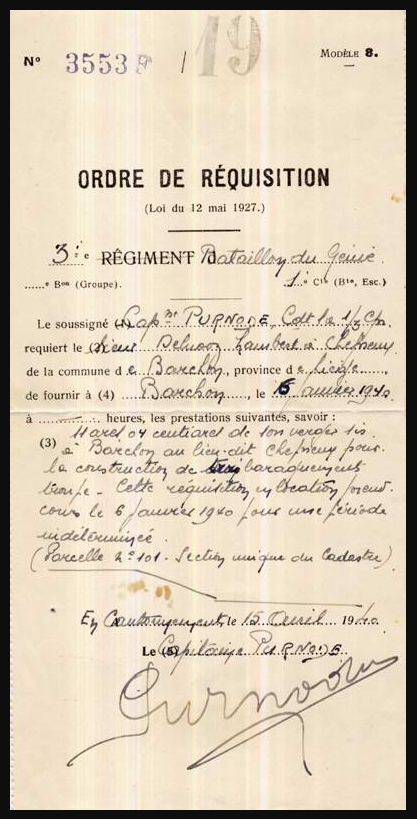 Nº 3553 F / 19 MODÈLE 8.
ORDRE DE RÉQUISITION
(Loi du 12 mai 1927.)
3ie RÉGIMENT Bataillon du Génie
e Bon (Groupe). 1ie Cie (Bie, Esc.)
Le soussigné (1) Capnt PURNODE, Cdt la 1/3 Cn
requiert le (Sieur Lambert à Chefneux
de la commune de Barchon, province de Liége,
de fournir à (4) Barchon, le 6 janvier 1940
à heures, les prestations suivantes, savoir :
(3) 11 ares 04 centiares de son verger sis
à Barchon au lieu-dit Chefneux pour
la construction de baraquements
troupe - Cette réquisition en location prend
cours le 6 janvier 1940 pour une période
indéterminée.
(Parcelle nº 101 - Section unique du Cadastre)
En Cantonnement, le 15 Avril 1940
Le (5) Capitaine PURNODE
Purnode